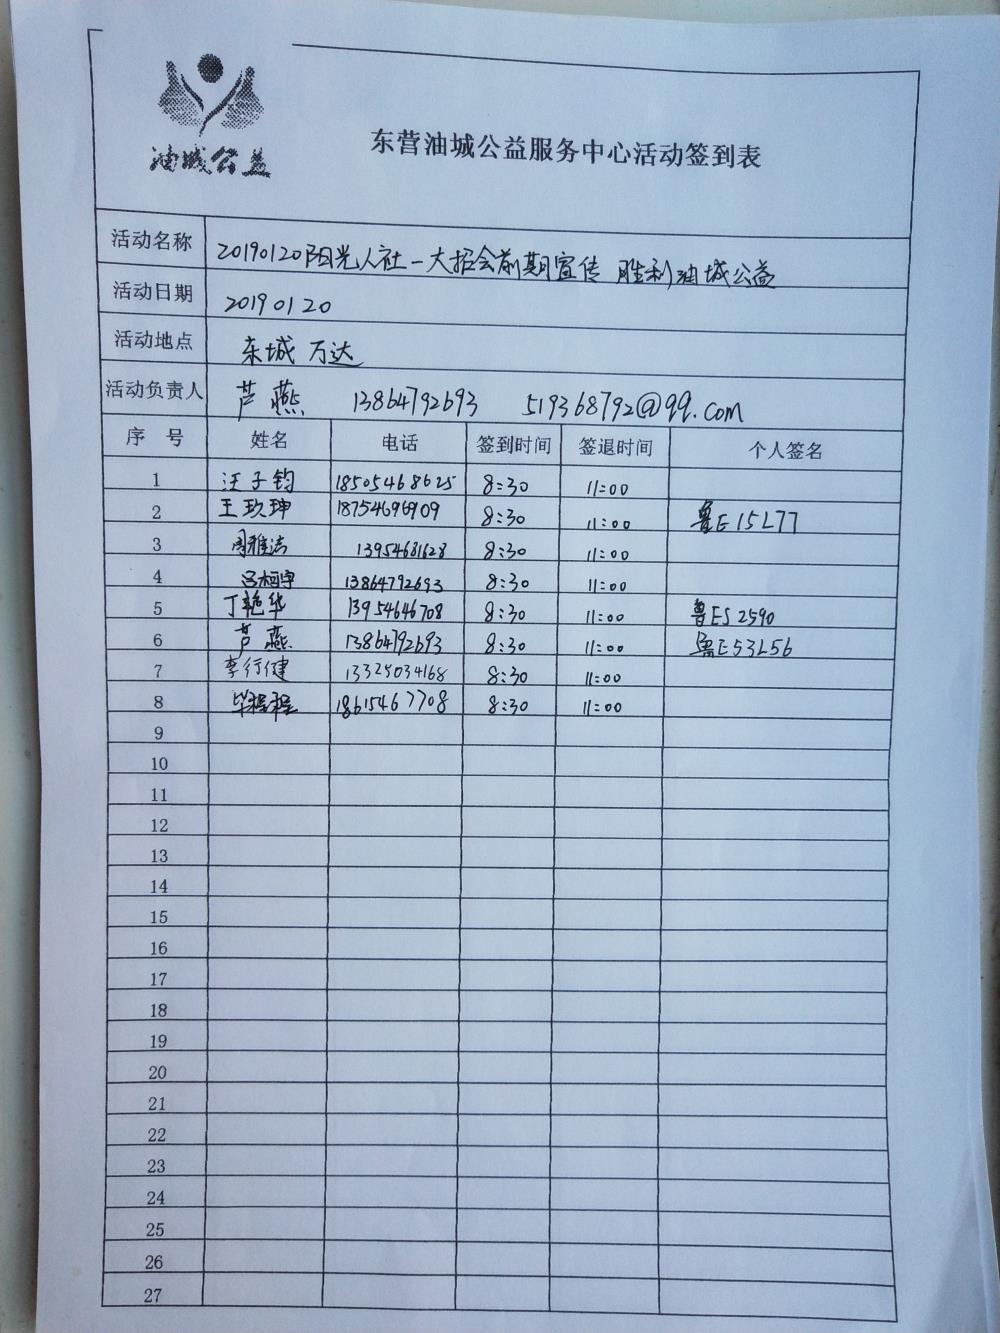 油城公益
东营油城公益服务中心活动签到表
活动名称 20190120阳光人社一大招会前期宣传 胜利油城公益
活动日期 20190120
活动地点 东城 万达
活动负责人 芦燕 13864792693 519368792@qq.com
序号 姓名 电话 签到时间 签退时间 个人签名
1 汪子钧 18505468625 8:30 11:00
2 王玖珅 18754696909 8:30 11:00 鲁E15L77
3 周雅洁 13954681628 8:30 11:00
4 13864792693 8:30 11:00
5 丁艳华 13954646708 8:30 11:00 鲁ES2590
6 芦燕 13864792693 8:30 11:00 鲁E53L56
7 李行健 13325034168 8:30 11:00
8 毕程程 18615467708 8:30 11:00
9
10
11
12
13
14
15
16
17
18
19
20
21
22
23
24
25
26
27